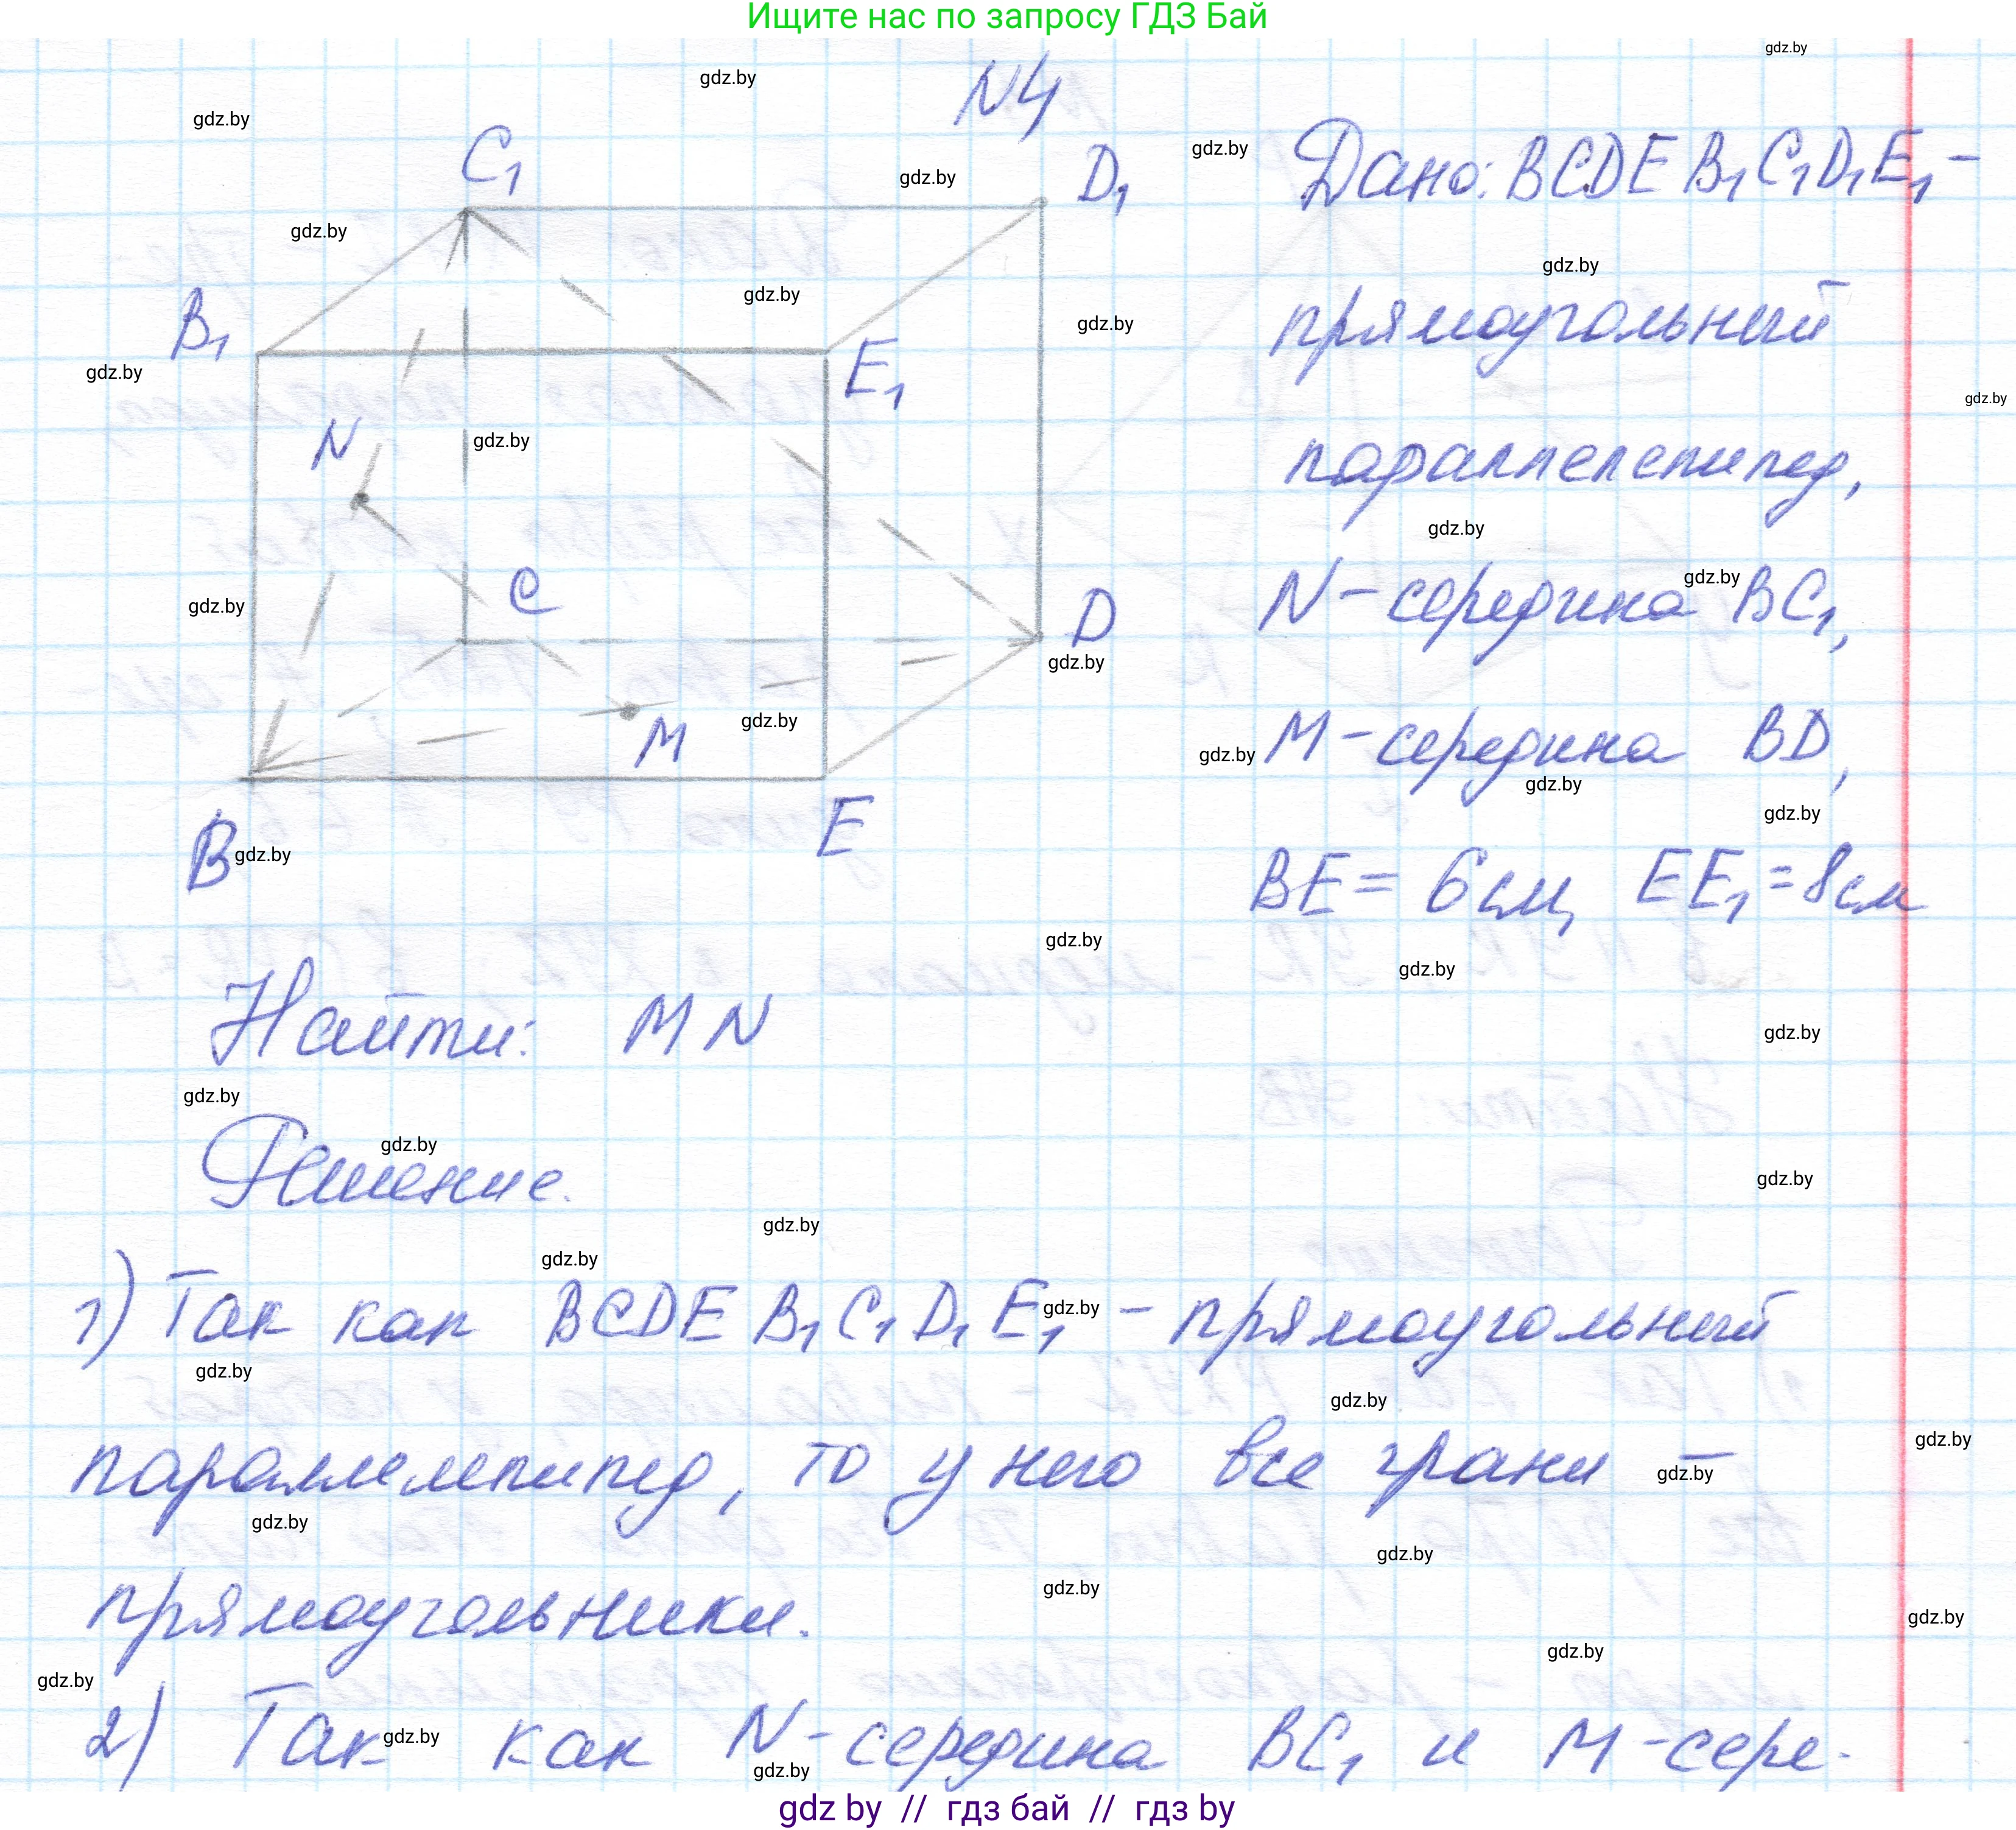 Ищите нас по запросу ГДЗ Бай
N4
C₁
D₁
B₁
E₁
N
C
D
M
B
E
Дано: BCDEB₁C₁D₁E₁ –
прямоугольный
параллелепипед,
N – середина BC₁,
M – середина BD,
BE = 6 см, EE₁ = 8 см
Найти: MN
Решение.
1) Так как BCDEB₁C₁D₁E₁ – прямоугольный
параллелепипед, то у него все грани –
прямоугольники.
2) Так как N – середина BC₁ и M – сере-
gdz.by
gdz by // гдз бай // гдз by